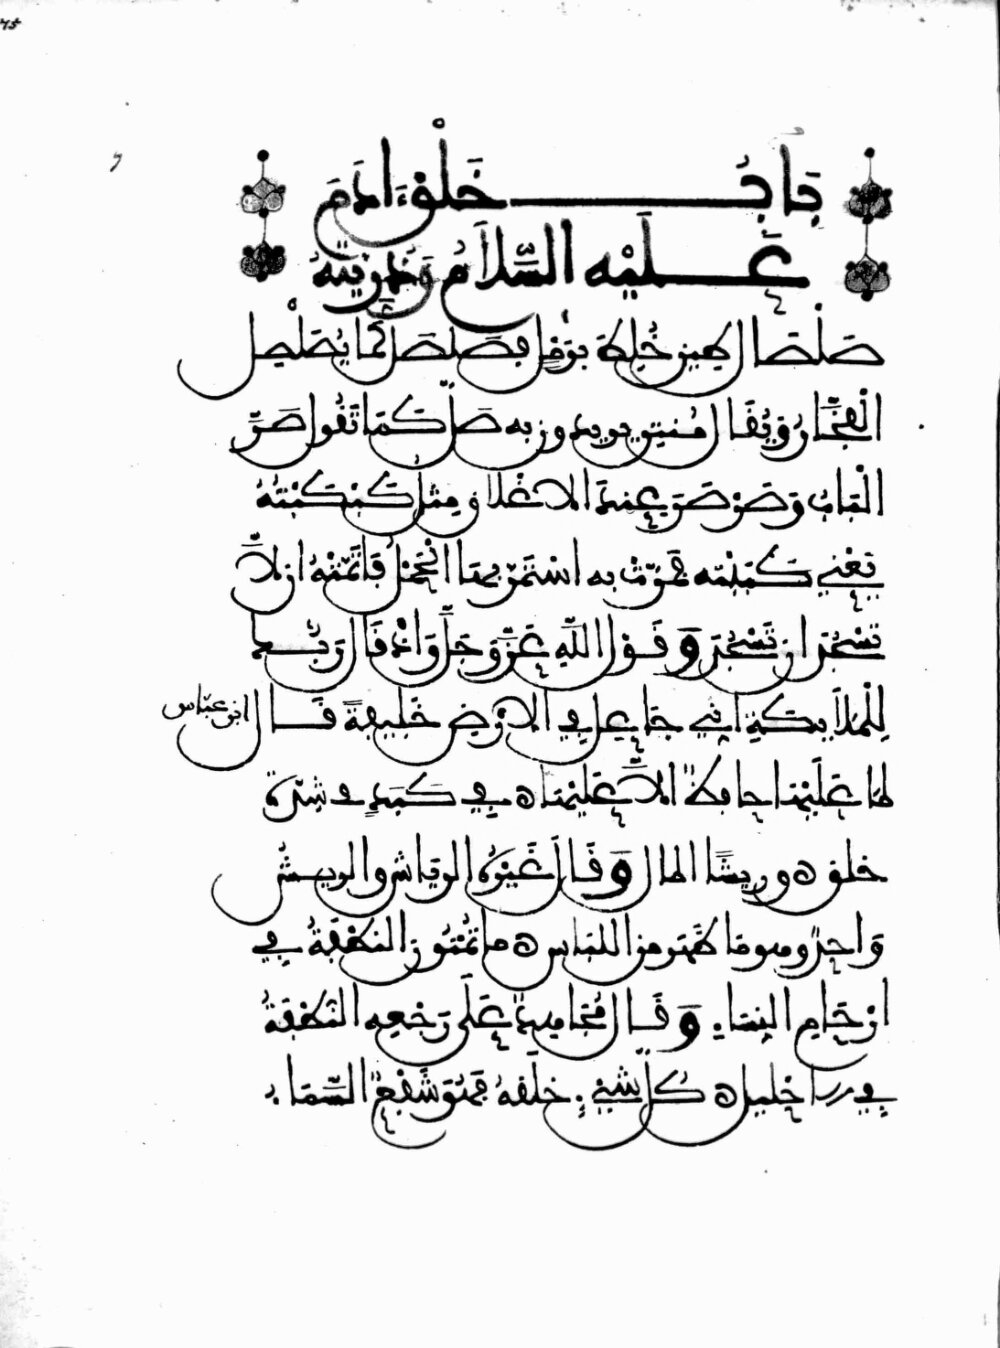 بَابُ خَلْقِ ءَادَمَ
عَلَيْهِ السَّلَامُ وَذُرِّيَّتِهِ
صَلْصَال طِين خُلِطَ بِرَمْل فَصَلْصَلَ كَمَا يُصَلْصِل
الْفَخَّار وَيُقَال مُنْتِن يريدون به صَلَّ كَمَا تَقُول صَرَّ
الْبَابُ وَصَرْصَرَ عِنْدَ الاغْلَاق مِثْل كَبْكَبْتُهُ
يَعْنِي كَبَبْتُهُ فَمَرَّتْ به اسْتَمَرَّ بهَا الْحَمْلُ فَأَتَمَّتْهُ ان لَّا
تَسْجُدَ ان تَسْجُدَ وَقَوْل اللَّهِ عَزَّ وَجَلَّ وَاذْ قَالَ رَبُّكَ
لِلْمَلَائِكَةِ انِّي جَاعِل فِي الارْضِ خَلِيفَةً قَالَ ابن عبّاس
لمَّا عَلَيْهَا حافظٌ الَّا عَلَيْهَا فِي كَبَدٍ فِي شِدَّةِ
خلق وريشًا المال وَقَالَ غَيْرُهُ الرياش والريش
وَاحِدٌ وهو مَا ظَهَرَ مِنَ اللباس مَا تُمْنُونَ النطْفَةُ فِي
ارْحَامِ النِّسَاءِ وَقَال مُجَاهِدٌ عَلَى رَجْعِهِ النطْفَةُ
فِي الاحْلِيل كُلّ شَيْءٍ خَلَقَهُ فَهُوَ شَفْعٌ السَّمَاءُ